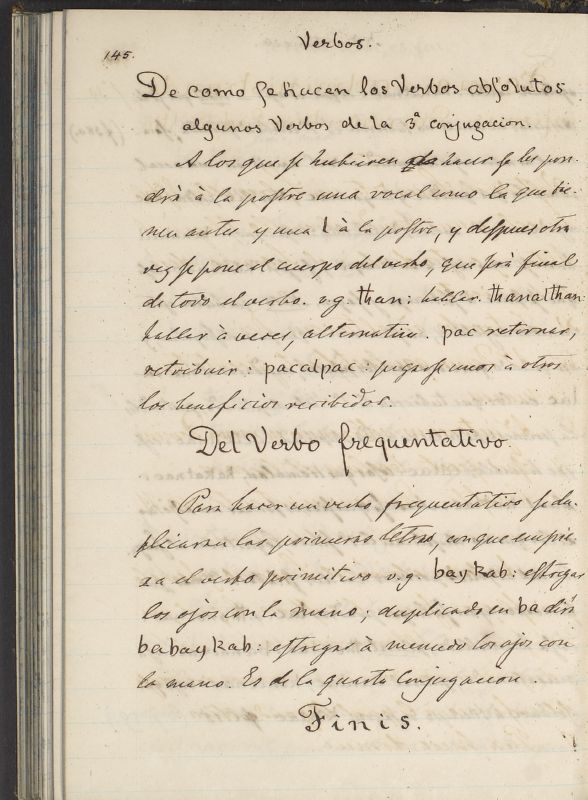 Verbos.
145.
De como se hacen los Verbos absolutos
algunos Verbos de la 3ª conjugacion.
A los que se hubieren hacer se les pon-
drà à la postre una vocal como la que tie-
nen antes y una l à la postre, y despues otra
vez se pone el cuerpo del verbo, que serà final
de todo el verbo. v.g. than: hablar. thanalthan
hablar à veces, alternatim. pac retornar,
retribuir: pacalpac: pagarse unos à otros
los beneficios recibidos.
Del Verbo frequentativo
Para hacer un verbo frequentativo se du-
plicaran las primeras letras, con que empie-
za el verbo primitivo v.g. baykab: estregar
los ojos con la mano; duplicado en ba dirà
babaykab: estregar à menudo los ojos con
la mano. Es de la quarta Conjugacion.
Finis.